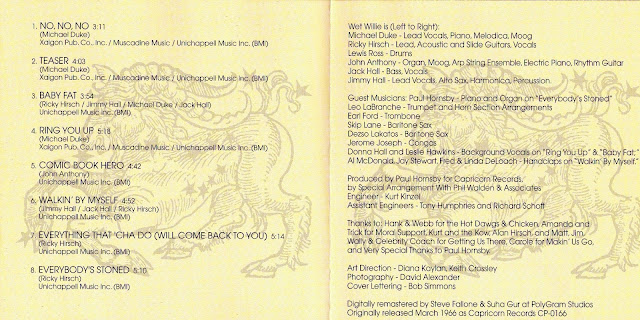 1. NO, NO, NO 3:11
(Michael Duke)
Xaigon Pub. Co., Inc. / Muscadine Music / Unichappell Music Inc. (BMI)
2. TEASER 4:03
(Michael Duke)
Xaigon Pub. Co., Inc. / Muscadine Music / Unichappell Music Inc. (BMI)
3. BABY FAT 3:54
(Ricky Hirsch / Jimmy Hall / Michael Duke / Jack Hall)
Unichappell Music Inc. (BMI)
4. RING YOU UP 5:18
(Michael Duke)
Xaigon Pub. Co., Inc. / Muscadine Music / Unichappell Music Inc. (BMI)
5. COMIC BOOK HERO 4:42
(John Anthony)
Unichappell Music Inc. (BMI)
6. WALKIN' BY MYSELF 4:52
(Jimmy Hall / Jack Hall / Ricky Hirsch)
Unichappell Music Inc. (BMI)
7. EVERYTHING THAT 'CHA DO (WILL COME BACK TO YOU) 5:14
(Ricky Hirsch)
Unichappell Music Inc. (BMI)
8. EVERYBODY'S STONED 5:10
(Ricky Hirsch)
Unichappell Music Inc. (BMI)
Wet Willie is (Left to Right):
Michael Duke - Lead Vocals, Piano, Melodica, Moog
Ricky Hirsch - Lead, Acoustic and Slide Guitars, Vocals
Lewis Ross - Drums
John Anthony - Organ, Moog, Arp String Ensemble, Electric Piano, Rhythm Guitar
Jack Hall - Bass, Vocals
Jimmy Hall - Lead Vocals, Alto Sax, Harmonica, Percussion.
Guest Musicians: Paul Hornsby - Piano and Organ on "Everybody's Stoned"
Leo LaBranche - Trumpet and Horn Section Arrangements
Earl Ford - Trombone
Skip Lane - Baritone Sax
Dezso Lakatos - Baritone Sax
Jerome Joseph - Congas
Donna Hall and Leslie Hawkins - Background Vocals on "Ring You Up" & "Baby Fat;"
Al McDonald, Jay Stewart, Fred & Linda DeLoach - Handclaps on "Walkin' By Myself."
Produced by Paul Hornsby for Capricorn Records.
by Special Arrangement With Phil Walden & Associates
Engineer - Kurt Kinzel
Assistant Engineers - Tony Humphries and Richard Schoff
Thanks to: Hank & Webb for the Hot Dawgs & Chicken, Amanda and
Trick for Moral Support, Kurt and the Kow, Alan Hirsch, and Matt, Jim,
Wally & Celebrity Coach for Getting Us There, Carole for Makin' Us Go,
and Very Special Thanks to Paul Hornsby.
Art Direction - Diana Kaylan, Keith Crossley
Photography - David Alexander
Cover Lettering - Bob Simmons
Digitally remastered by Steve Fallone & Suha Gur at PolyGram Studios
Originally released March 1966 as Capricorn Records CP-0166